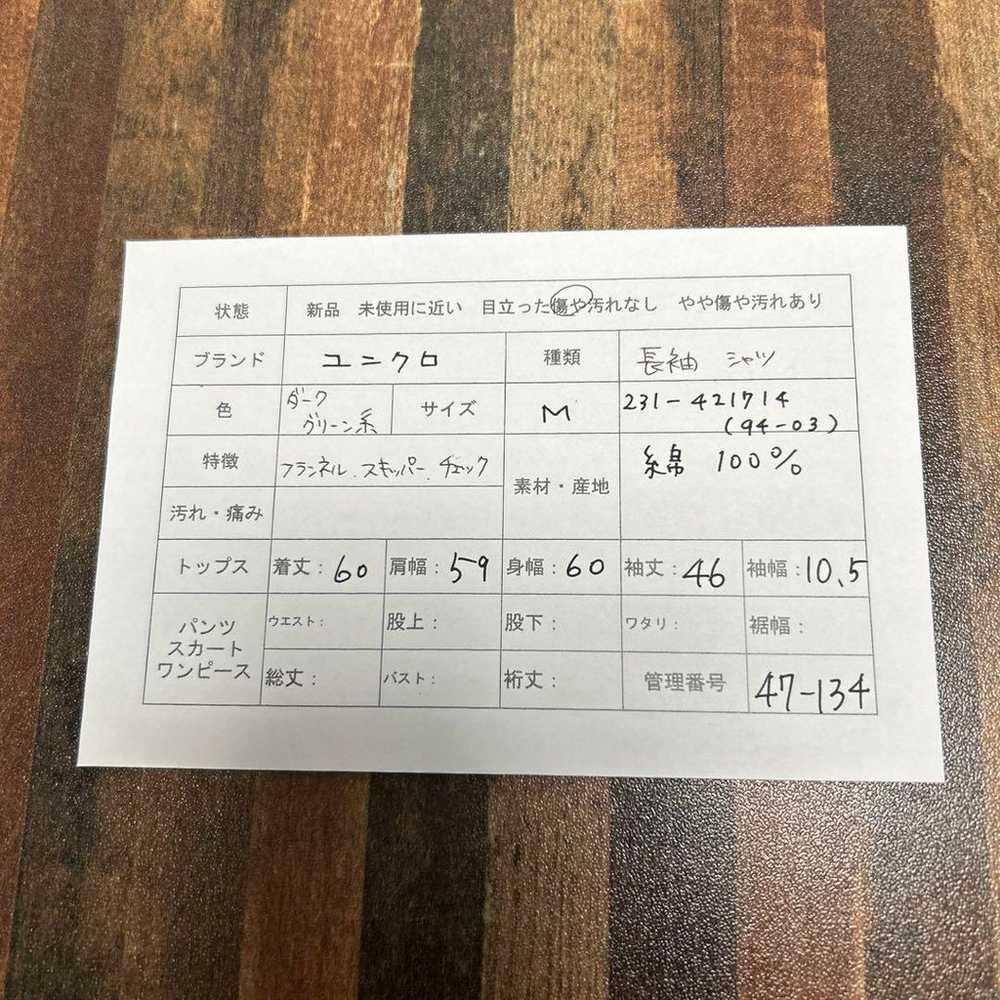 状態 新品 未使用に近い 目立った傷や汚れなし やや傷や汚れあり
ブランド ユニクロ 種類 長袖 シャツ
色 ダーク グリーン系 サイズ M 231-421714 (94-03)
特徴 フランネル、スキッパー、チェック 素材・産地 綿 100%
汚れ・痛み
トップス 着丈: 60 肩幅: 59 身幅: 60 袖丈: 46 袖幅: 10.5
パンツ スカート ワンピース ウエスト: 股上: 股下: ワタリ: 裾幅:
総丈: バスト: 裄丈: 管理番号 47-134